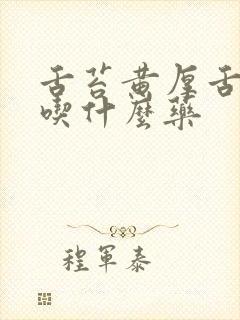 舌苔黄厚舌
喫什麼藥
程軍泰